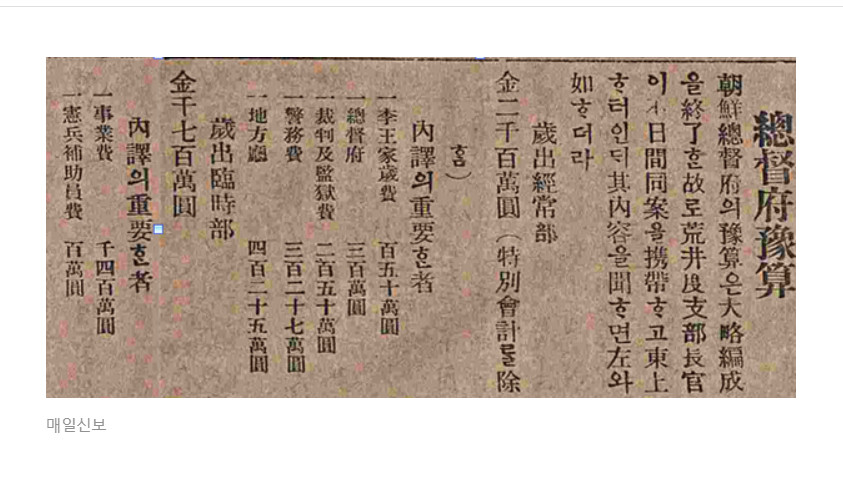 總督府豫算
朝鮮總督府의豫算은大略編成
을終了ᄒᆞᆫ故로荒井度支部長官
이不日間同案을携帶ᄒᆞ고東上
ᄒᆞ터인ᄃᆡ其內容을聞ᄒᆞ면左와
如ᄒᆞ더라
歲出經常部
金二千百萬圓（特別會計를除
ᄒᆞᆷ）
內譯의重要ᄒᆞᆫ者
一李王家歲費 百五十萬圓
一總督府 三百萬圓
一裁判及監獄費 二百五十萬圓
一警務費 三百二十七萬圓
一地方廳 四百二十五萬圓
歲出臨時部
金千七百萬圓
內譯의重要ᄒᆞᆫ者
一事業費 千四百萬圓
一憲兵補助員費 百萬圓
매일신보